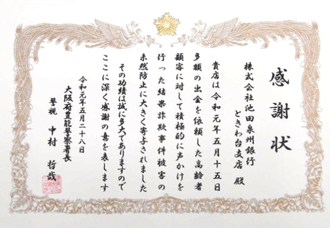 感謝状
株式会社池田泉州銀行
ときわ台支店 殿
貴店は令和元年五月十五日
多額の出金を依頼した高齢者
顧客に対して積極的に声かけを
行った結果詐欺事件被害の
未然防止に大きく寄与されました
その功績は誠に多大でありますので
ここに深く感謝の意を表します
令和元年五月二十八日
大阪府豊能警察署長
警視 中村 哲哉